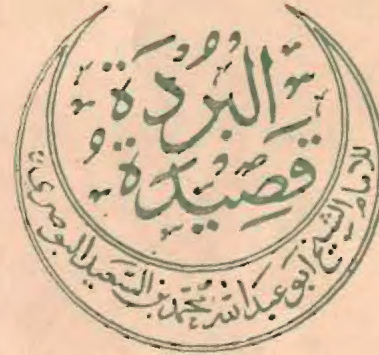 البُرْدَة
قَصِيْدَة
للامام الشيخ ابو عبدالله محمّد بن السّعيد البوصرى